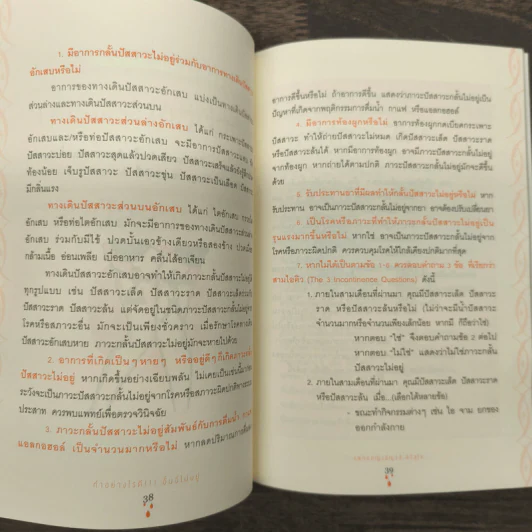 1. มีอาการกลั้นปัสสาวะไม่อยู่ร่วมกับอาการทางเดินปัสสาวะ
อักเสบหรือไม่
อาการของทางเดินปัสสาวะอักเสบ แบ่งเป็นทางเดินปัสสาวะ
ส่วนล่างและทางเดินปัสสาวะส่วนบน
ทางเดินปัสสาวะส่วนล่างอักเสบ ได้แก่ กระเพาะปัสสาวะ
อักเสบและ/หรือท่อปัสสาวะอักเสบ จะมีอาการปัสสาวะแสบ
ปัสสาวะบ่อย ปัสสาวะสุดแล้วปวดเสียว ปัสสาวะเสร็จแล้ว
ท้องน้อย เจ็บรูปัสสาวะ ปัสสาวะขุ่น ปัสสาวะเป็นเลือด
มีกลิ่นแรง
ทางเดินปัสสาวะส่วนบนอักเสบ ได้แก่ ไตอักเสบ กรวยไต
อักเสบ หรือท่อไตอักเสบ มักจะมีอาการของทางเดินปัสสาวะ
อักเสบ ร่วมกับมีไข้ ปวดบั้นเอวข้างเดียวหรือสองข้าง ปวดเมื่อย
กล้ามเนื้อ อ่อนเพลีย เบื่ออาหาร คลื่นไส้อาเจียน
ทางเดินปัสสาวะอักเสบอาจทำให้เกิดภาวะกลั้นปัสสาวะไม่อยู่ได้
ทุกรูปแบบ เช่น ปัสสาวะเล็ด ปัสสาวะราด ปัสสาวะเล็ดร่วมกับ
ปัสสาวะราด ปัสสาวะล้น แต่จัดอยู่ในชนิดภาวะกลั้นปัสสาวะไม่อยู่จาก
โรคหรือภาวะอื่น มักจะเป็นเพียงชั่วคราว เมื่อรักษาโรคทางเดิน
ปัสสาวะอักเสบหาย ภาวะกลั้นปัสสาวะไม่อยู่มักจะหายไปด้วย
2. อาการที่เกิดเป็นๆ หายๆ หรืออยู่ดีๆ ก็เกิดภาวะกลั้น
ปัสสาวะไม่อยู่ หากเกิดขึ้นอย่างเฉียบพลัน ไม่เคยเป็นเช่นนี้มาก่อน
ระวังจะเป็นภาวะกลั้นปัสสาวะไม่อยู่จากโรคหรือสภาวะผิดปกติทาง
ประสาท ควรพบแพทย์เพื่อตรวจวินิจฉัย
3. ภาวะกลั้นปัสสาวะไม่อยู่สัมพันธ์กับการดื่มน้ำ กาแฟ
แอลกอฮอล์ เป็นจำนวนมากหรือไม่ หากลดปริมาณการดื่ม
38
อาการดีขึ้นหรือไม่ ถ้าอาการดีขึ้น แสดงว่าภาวะปัสสาวะกลั้นไม่อยู่เป็น
ปัญหาที่เกิดจากพฤติกรรมการดื่มน้ำ กาแฟ หรือแอลกอฮอล์
4. มีอาการท้องผูกหรือไม่ อาการท้องผูกกดเบียดกระเพาะ
ปัสสาวะ ทำให้ถ่ายปัสสาวะไม่หมด เกิดปัสสาวะเล็ด ปัสสาวะราด
หรือปัสสาวะล้นได้ หากมีอาการท้องผูก อาจมีภาวะปัสสาวะกลั้นไม่อยู่
จากท้องผูก หากถ่ายได้ตามปกติ ภาวะปัสสาวะกลั้นไม่อยู่มักจะดีขึ้น
ด้วย
5. รับประทานยาที่มีผลทำให้กลั้นปัสสาวะไม่อยู่หรือไม่ หาก
รับประทาน อาจเป็นภาวะปัสสาวะกลั้นไม่อยู่จากยา อาจต้องปรับเปลี่ยนยา
6. เป็นโรคหรือภาวะที่ทำให้ภาวะกลั้นปัสสาวะไม่อยู่เป็น
รุนแรงมากขึ้นหรือไม่ หากใช่ อาจเป็นภาวะปัสสาวะกลั้นไม่อยู่จาก
โรคหรือภาวะผิดปกติ ควรควบคุมโรคให้ใกล้เคียงปกติมากที่สุด
7. หากไม่ได้เป็นตามข้อ 1-6 ควรลองทำถาม 3 ข้อ ที่เรียกว่า
สามไอคิว (The 3 Incontinence Questions) ดังนี้
1. ภายในสามเดือนที่ผ่านมา คุณมีปัสสาวะเล็ด ปัสสาวะ
ราด หรือปัสสาวะล้นหรือไม่ (ไม่ว่าจะมีน้ำปัสสาวะ
จำนวนมากหรือจำนวนเพียงเล็กน้อย หากมี ก็ถือว่าใช่)
หากตอบ "ใช่" จึงตอบคำถามข้อ 2 ต่อไป
หากตอบ "ไม่ใช่" แสดงว่าไม่ใช่ภาวะกลั้น
ปัสสาวะไม่อยู่
2. ภายในสามเดือนที่ผ่านมา คุณมีปัสสาวะเล็ด ปัสสาวะ ราด
หรือปัสสาวะล้นเมื่อ...(เลือกได้หลายข้อ)
- ขณะทำกิจกรรมต่างๆ เช่น ไอ จาม ยกของ
ออกกำลังกาย
39